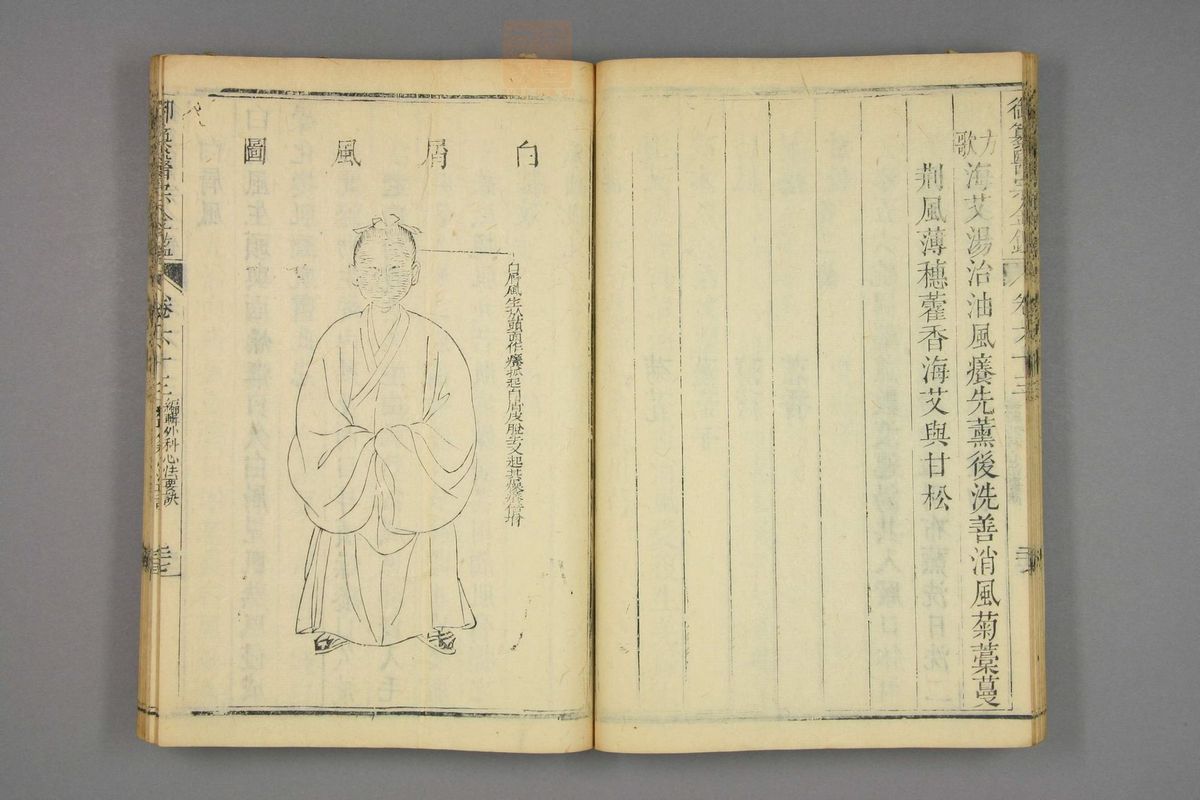 御纂醫宗金鑑 卷六十三
方歌
海艾湯治油風癢先薰後洗善消風菊藁蔓
荆風薄穗藿香海艾與甘松
白屑風圖
白屑風生於頭面作癢抓起白屑皮脫去又起其癢倍增
御纂醫宗金鑑 卷六十三
編輯外科心法要訣